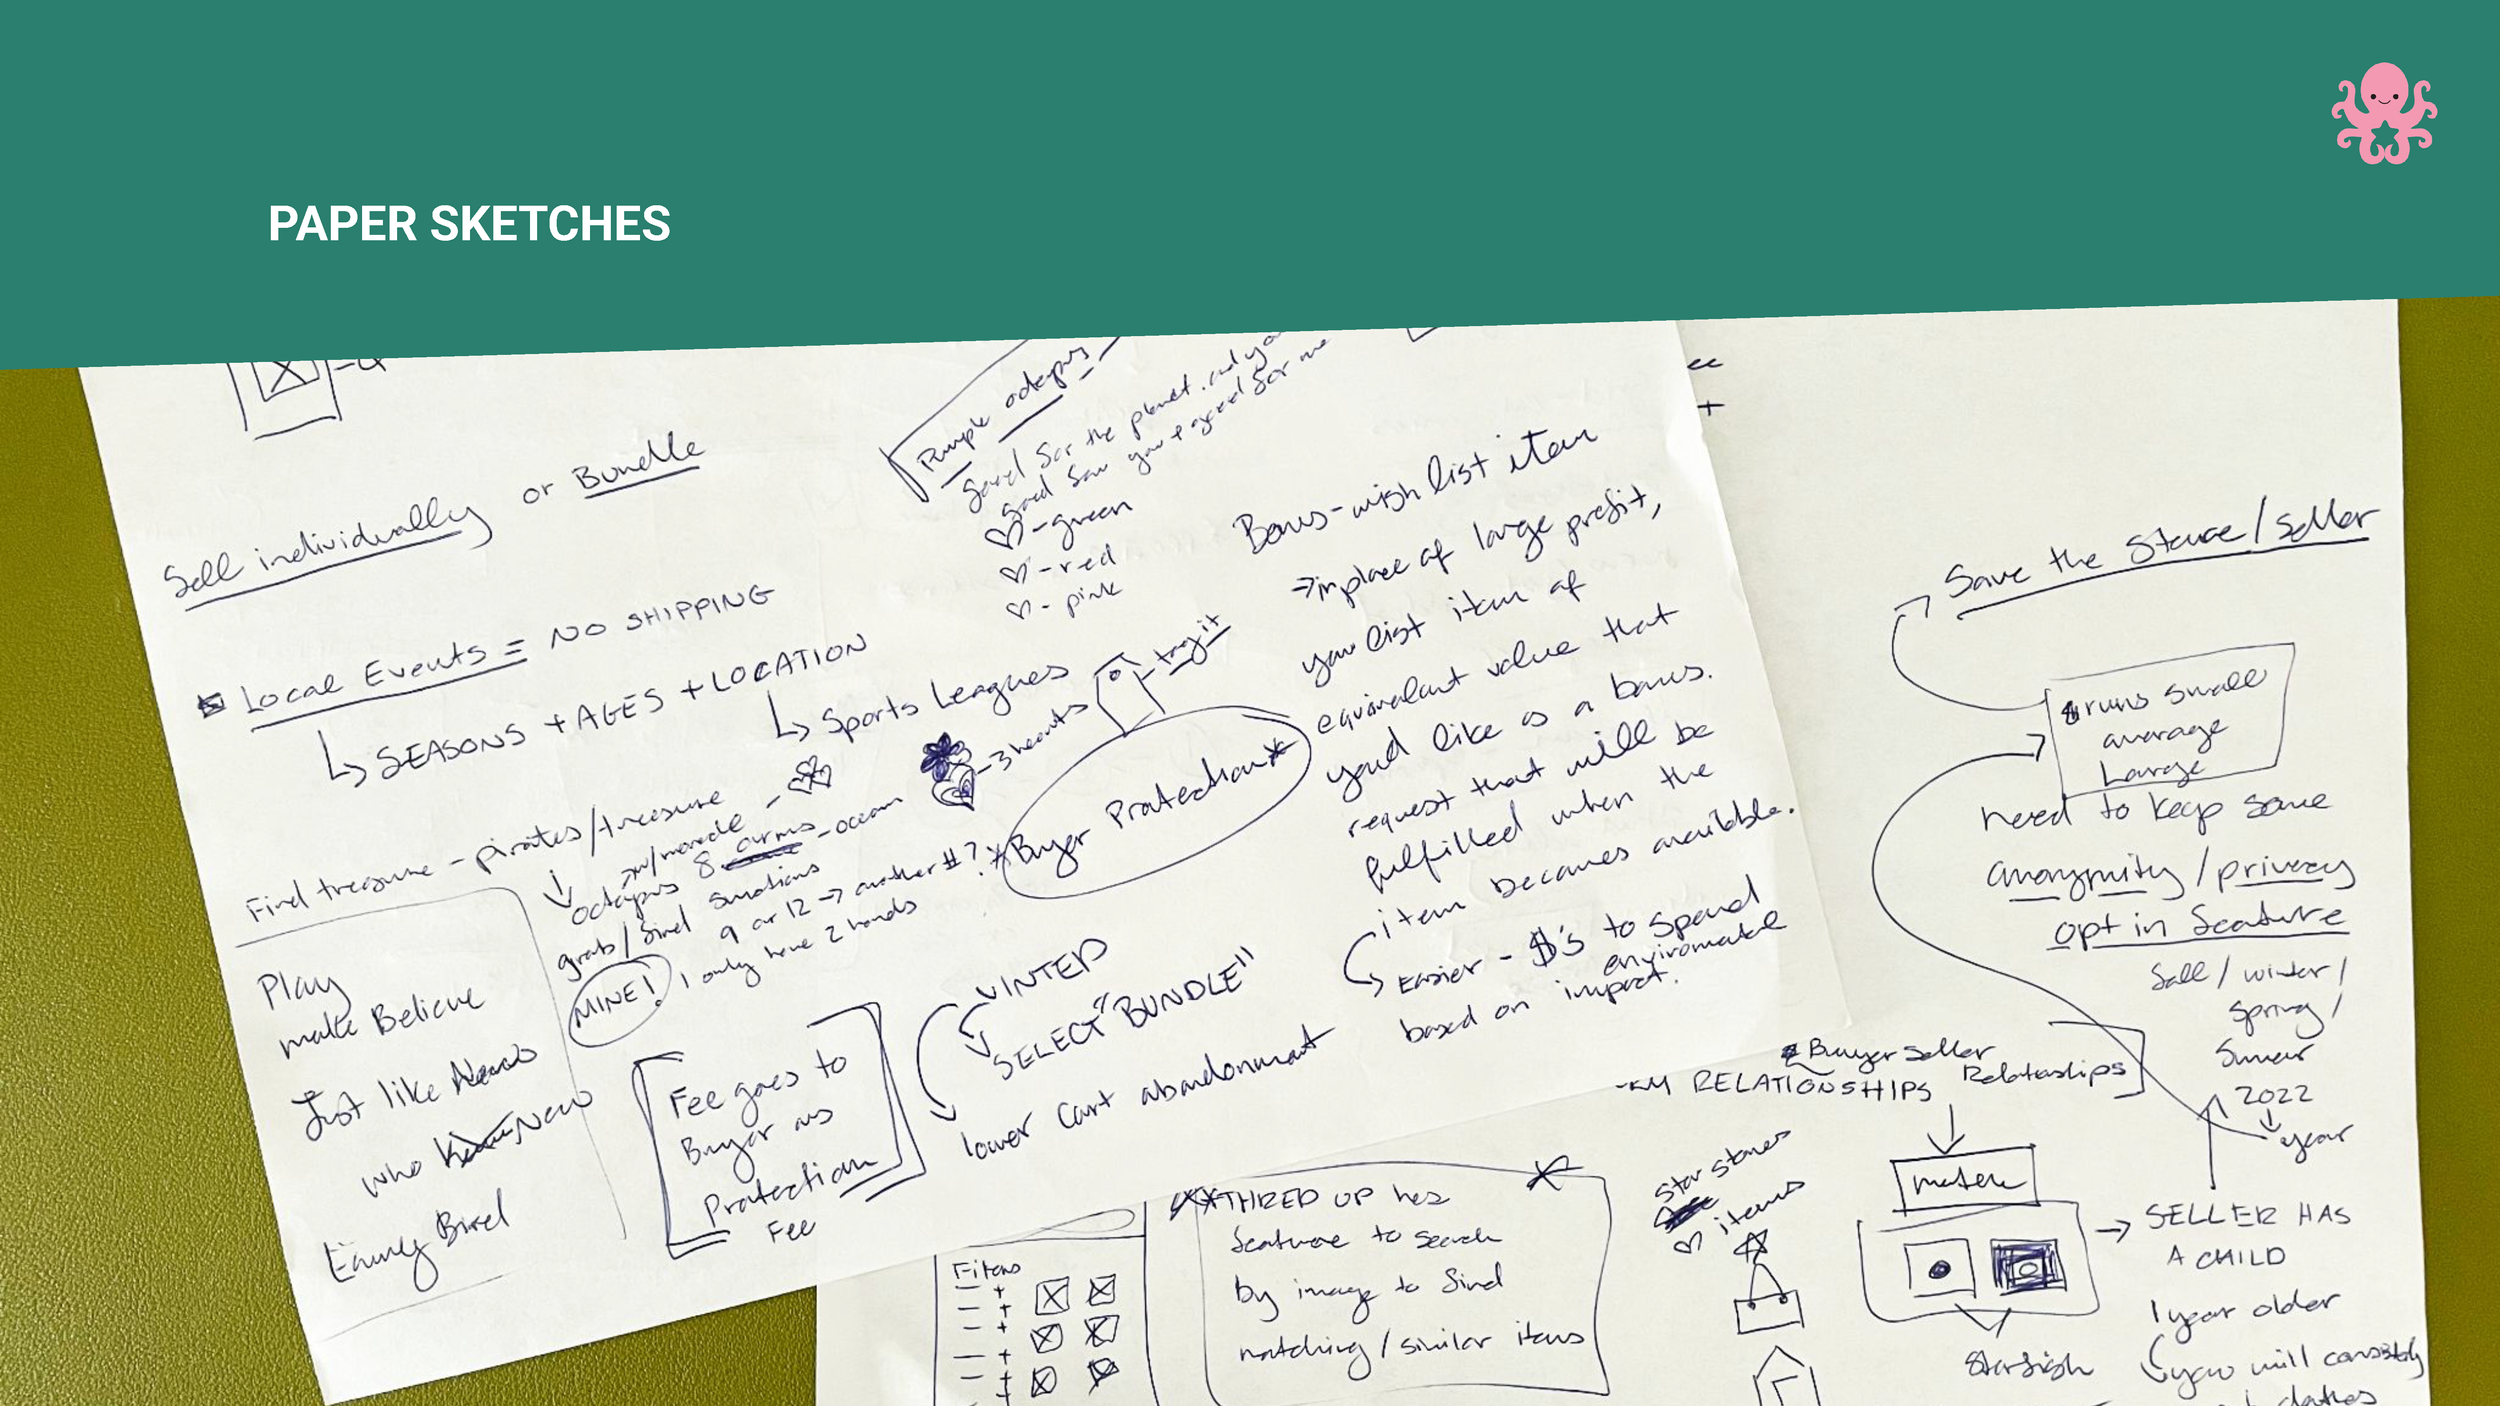 PAPER SKETCHES
Sell individually or Bundle
Local Events = NO SHIPPING
SEASONS + AGES + LOCATION
Sports Leagues
Find treasure - pirates/treasure
octopus 8 arms - ocean
grab/find
9 or 12 → another #?
MINE! I only have 2 hands
Play
make Believe
Just like New
who New
Early Bird
Fee goes to
Buyer as
Protection
Fee
Purple octopus
Good for the planet and
good for you + good for me
♡ - green
♡ - red
♡ - pink
tag it
- 3 hearts
*Buyer Protection*
VINTED
SELECT "BUNDLE"
lower Cart abandonment
Bonus - wish list item
→ in place of large profit,
you list item of
equivalent value that
youd like as a bonus.
request that will be
fulfilled when the
item becomes available.
Easier - $'s to spend
based on enviromental
impact.
Save the Store/seller
runs small
average
Large
need to keep some
anonymity / privacy
opt in feature
fall / winter /
spring /
Sumer
2022
year
Buyer seller
RELATIONSHIPS Relatioships
match
starfish
SELLER HAS
A CHILD
1 year older
you will
clothes
Star stores
♡ items
Filters
**THRED UP has
feature to search
by image to find
matching / similar items